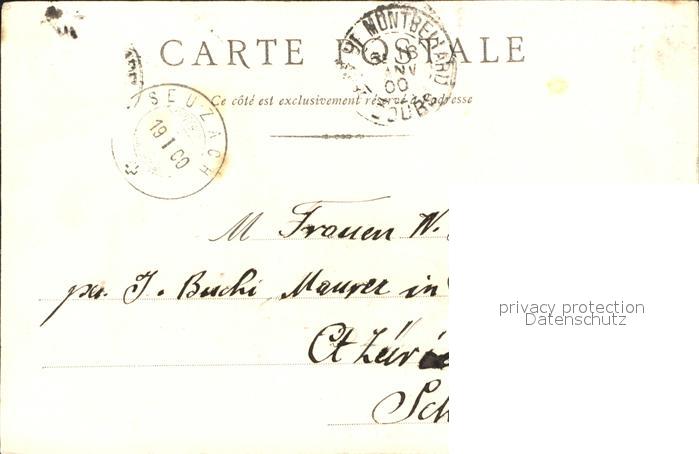 CARTE POSTALE
Ce côté est exclusivement réservé à l'adresse
MONTBÉLIARD
00
DOUBS
SEUZACH
19 I 00
M Frauen W.
per. J. Buchi Maurer in
Ct Züri
Sch
privacy protection
Datenschutz